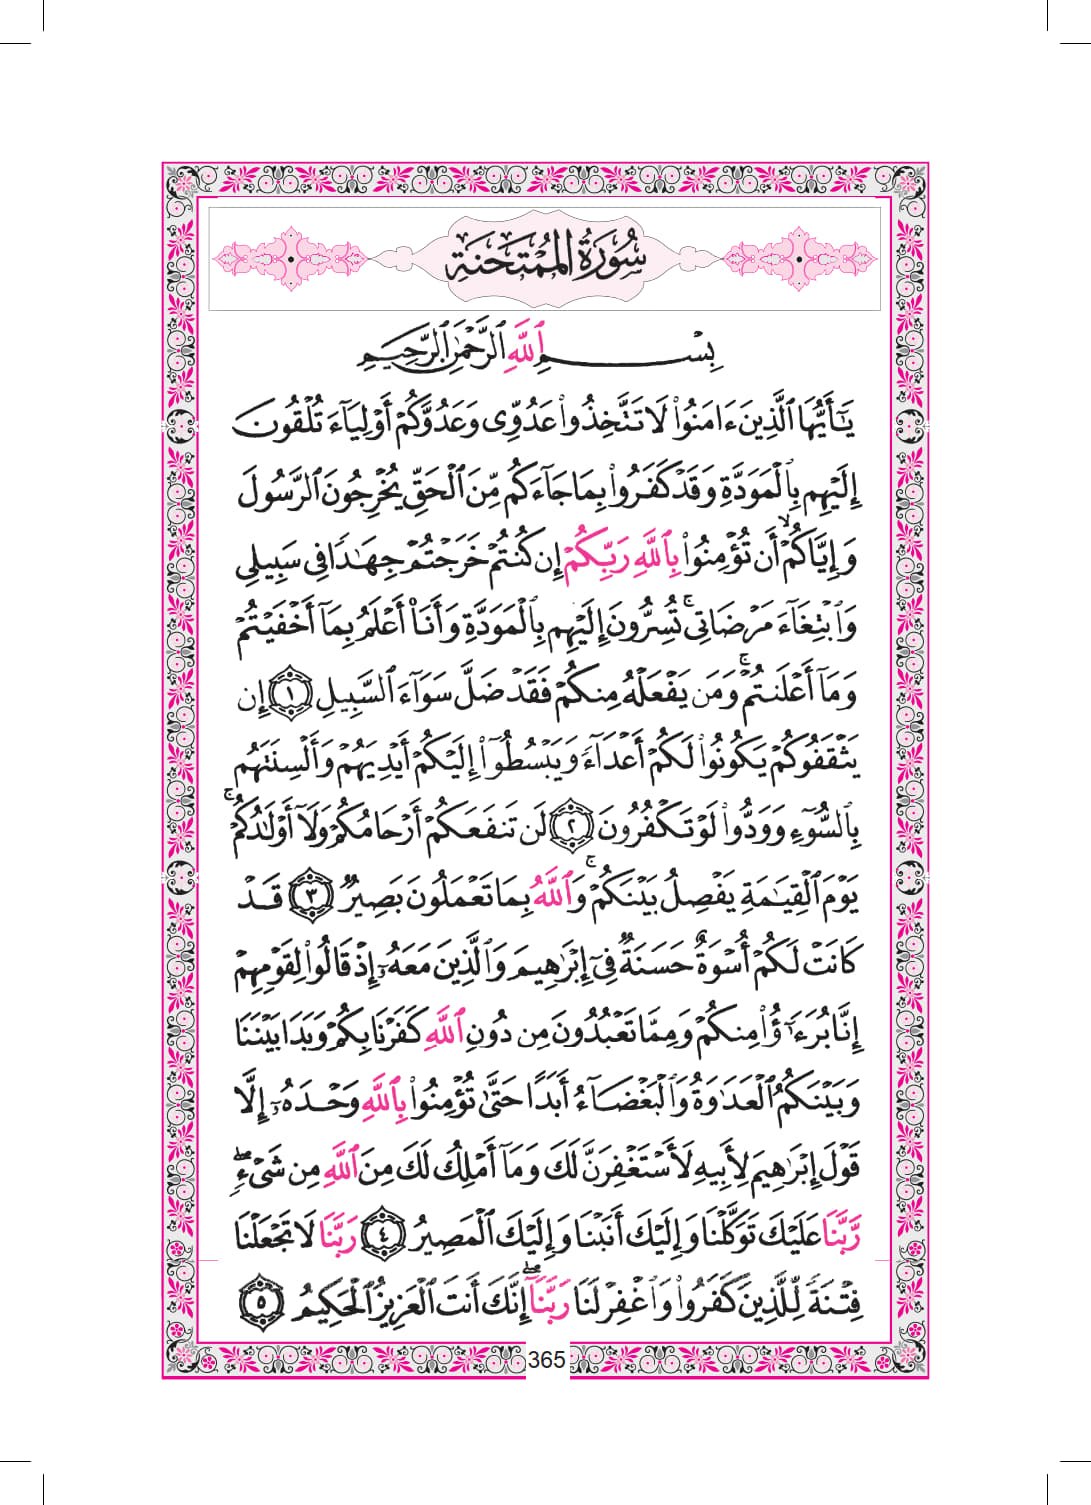 سُورَةُ المُمْتَحنَةِ
بِسْمِ ٱللَّهِ ٱلرَّحْمَٰنِ ٱلرَّحِيمِ
يَٰٓأَيُّهَا ٱلَّذِينَ ءَامَنُوا۟ لَا تَتَّخِذُوا۟ عَدُوِّى وَعَدُوَّكُمْ أَوْلِيَآءَ تُلْقُونَ
إِلَيْهِم بِٱلْمَوَدَّةِ وَقَدْ كَفَرُوا۟ بِمَا جَآءَكُم مِّنَ ٱلْحَقِّ يُخْرِجُونَ ٱلرَّسُولَ
وَإِيَّاكُمْ ۙ أَن تُؤْمِنُوا۟ بِٱللَّهِ رَبِّكُمْ إِن كُنتُمْ خَرَجْتُمْ جِهَٰدًا فِى سَبِيلِى
وَٱبْتِغَآءَ مَرْضَاتِى ۚ تُسِرُّونَ إِلَيْهِم بِٱلْمَوَدَّةِ وَأَنَا۠ أَعْلَمُ بِمَآ أَخْفَيْتُمْ
وَمَآ أَعْلَنتُمْ ۚ وَمَن يَفْعَلْهُ مِنكُمْ فَقَدْ ضَلَّ سَوَآءَ ٱلسَّبِيلِ ١ إِن
يَثْقَفُوكُمْ يَكُونُوا۟ لَكُمْ أَعْدَآءً وَيَبْسُطُوٓا۟ إِلَيْكُمْ أَيْدِيَهُمْ وَأَلْسِنَتَهُم
بِٱلسُّوٓءِ وَوَدُّوا۟ لَوْ تَكْفُرُونَ ٢ لَن تَنفَعَكُمْ أَرْحَامُكُمْ وَلَآ أَوْلَٰدُكُمْ ۚ
يَوْمَ ٱلْقِيَٰمَةِ يَفْصِلُ بَيْنَكُمْ ۚ وَٱللَّهُ بِمَا تَعْمَلُونَ بَصِيرٌ ٣ قَدْ
كَانَتْ لَكُمْ أُسْوَةٌ حَسَنَةٌ فِىٓ إِبْرَٰهِيمَ وَٱلَّذِينَ مَعَهُۥٓ إِذْ قَالُوا۟ لِقَوْمِهِمْ
إِنَّا بُرَءَٰٓؤُا۟ مِنكُمْ وَمِمَّا تَعْبُدُونَ مِن دُونِ ٱللَّهِ كَفَرْنَا بِكُمْ وَبَدَا بَيْنَنَا
وَبَيْنَكُمُ ٱلْعَدَٰوَةُ وَٱلْبَغْضَآءُ أَبَدًا حَتَّىٰ تُؤْمِنُوا۟ بِٱللَّهِ وَحْدَهُۥٓ إِلَّا
قَوْلَ إِبْرَٰهِيمَ لِأَبِيهِ لَأَسْتَغْفِرَنَّ لَكَ وَمَآ أَمْلِكُ لَكَ مِنَ ٱللَّهِ مِن شَىْءٍ ۖ
رَّبَّنَا عَلَيْكَ تَوَكَّلْنَا وَإِلَيْكَ أَنَبْنَا وَإِلَيْكَ ٱلْمَصِيرُ ٤ رَبَّنَا لَا تَجْعَلْنَا
فِتْنَةً لِّلَّذِينَ كَفَرُوا۟ وَٱغْفِرْ لَنَا رَبَّنَآ ۖ إِنَّكَ أَنتَ ٱلْعَزِيزُ ٱلْحَكِيمُ ٥
365